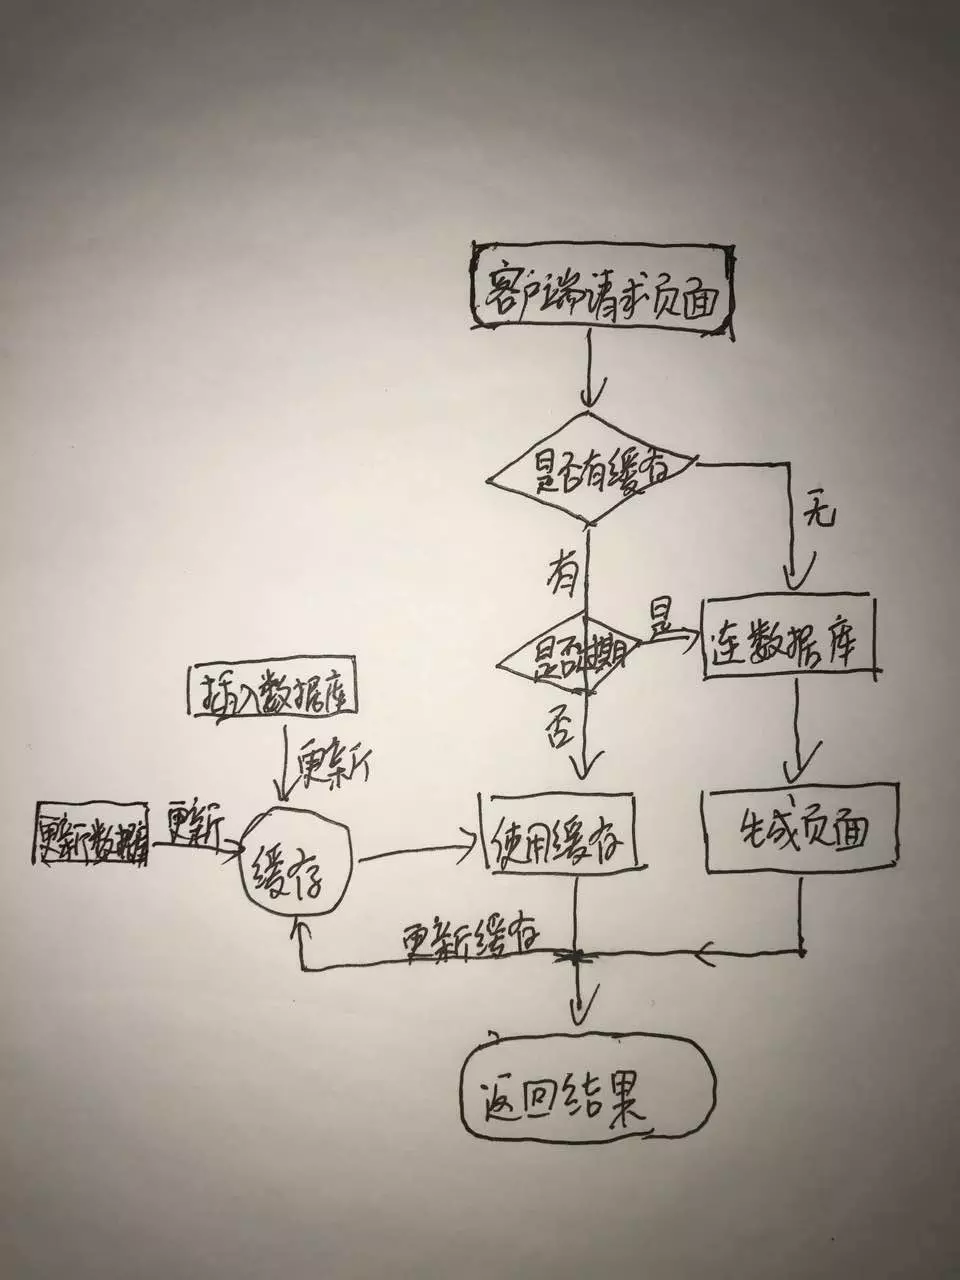 客户端请求页面
是否有缓存
无
有
是
是否过期
连数据库
否
插入数据库
更新
更新数据
更新
缓存
使用缓存
生成页面
更新缓存
返回结果